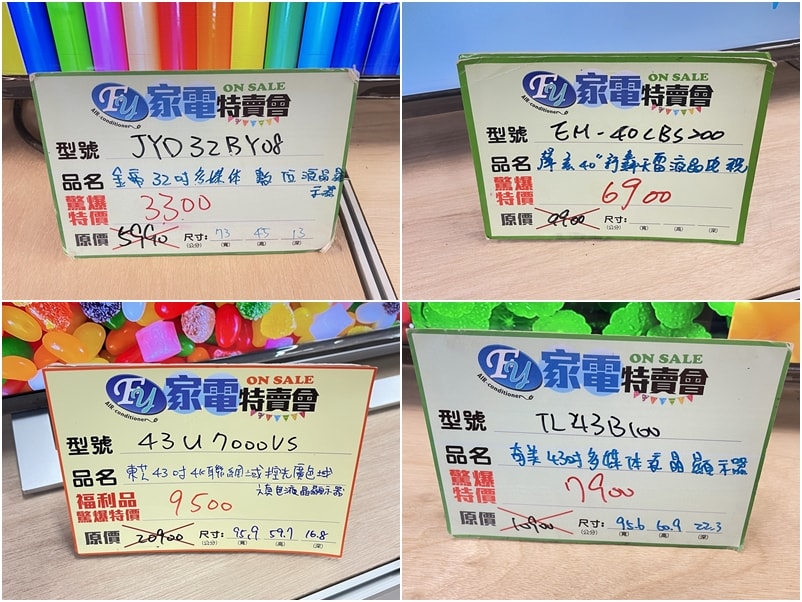 FY 家電特賣會 ON SALE
AIR-conditioner
型號 JYD32BY08
品名 金帝32吋多媒体數位液晶顯
示器
驚爆特價 3300
原價 5990 尺寸:(公分) 73(寬) 45(高) 13(深)
FY 家電特賣會 ON SALE
AIR-conditioner
型號 EM-40CBS200
品名 聲寶40"新轟天雷液晶電視
驚爆特價 6900
原價 9900 尺寸:(公分) (寬) (高) (深)
FY 家電特賣會 ON SALE
AIR-conditioner
型號 43U7000VS
品名 東芝43吋4K聯網 域控光廣色域
六真色液晶顯示器
福利品
驚爆特價 9500
原價 20900 尺寸:(公分) 95.9(寬) 59.7(高) 16.8(深)
FY 家電特賣會 ON SALE
AIR-conditioner
型號 TL43B100
品名 奇美43吋多媒体液晶顯示器
驚爆特價 7900
原價 10900 尺寸:(公分) 95.6(寬) 60.9(高) 22.3(深)